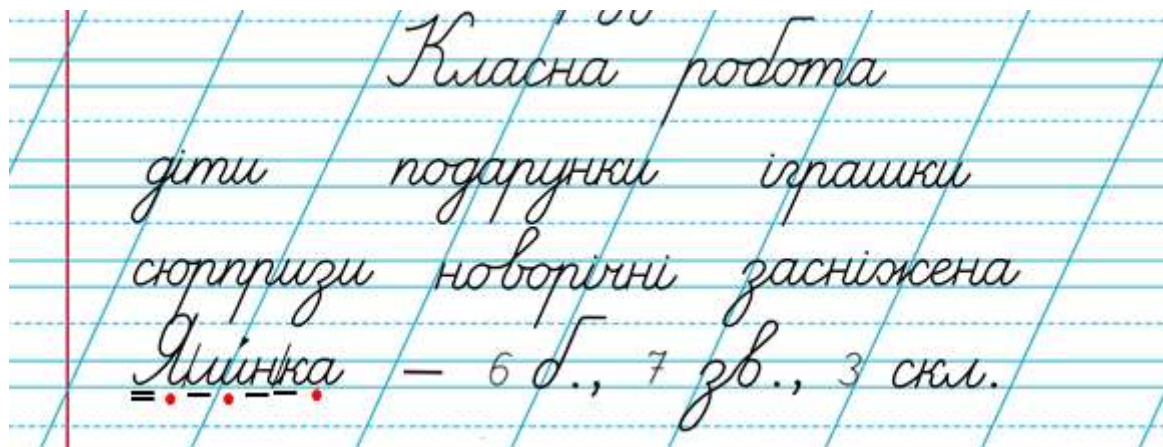 Класна робота
діти подарунки іграшки
сюрпризи новорічні засніжена
Ялинка – 6 б., 7 зв., 3 скл.